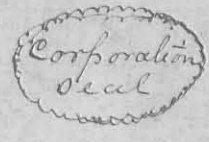 Corporation
Seal